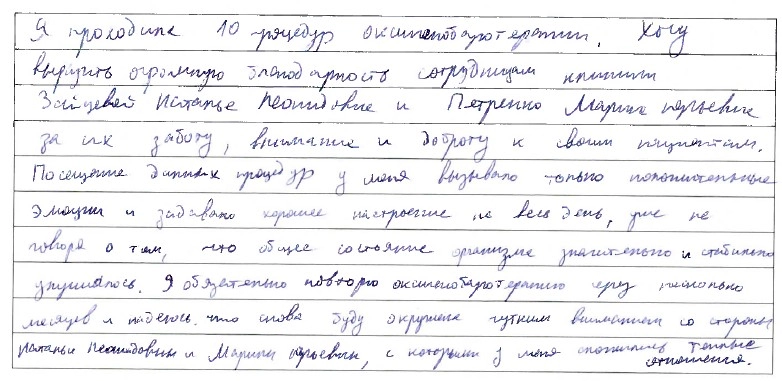 Я проходила 10 процедур оксигенобаротерапии. Хочу
выразить огромную благодарность сотрудницам клиники
Зайцевой Наталье Леонидовне и Петренко Марине Юрьевне
за их заботу, внимание и доброту к своим пациентам.
Посещение данных процедур у меня вызывало только положительные
эмоции и задавало хорошее настроение на весь день, уже не
говоря о том, что общее состояние организма значительно и стабильно
улучшилось. Я обязательно повторю оксигенобаротерапию через несколько
месяцев и надеюсь, что снова буду окружена чутким вниманием со стороны
Натальи Леонидовны и Марины Юрьевны, с которыми у меня сложились теплые
отношения.